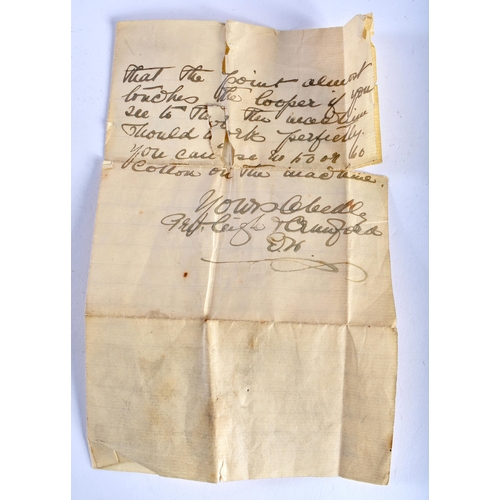 That The point almost
touches the looper if you
see to This the machine
should work perfectly.
You can use no 50 or 60
Cotton on the machine.
Yours Obedly
Geo. H. Leigh & Crawford